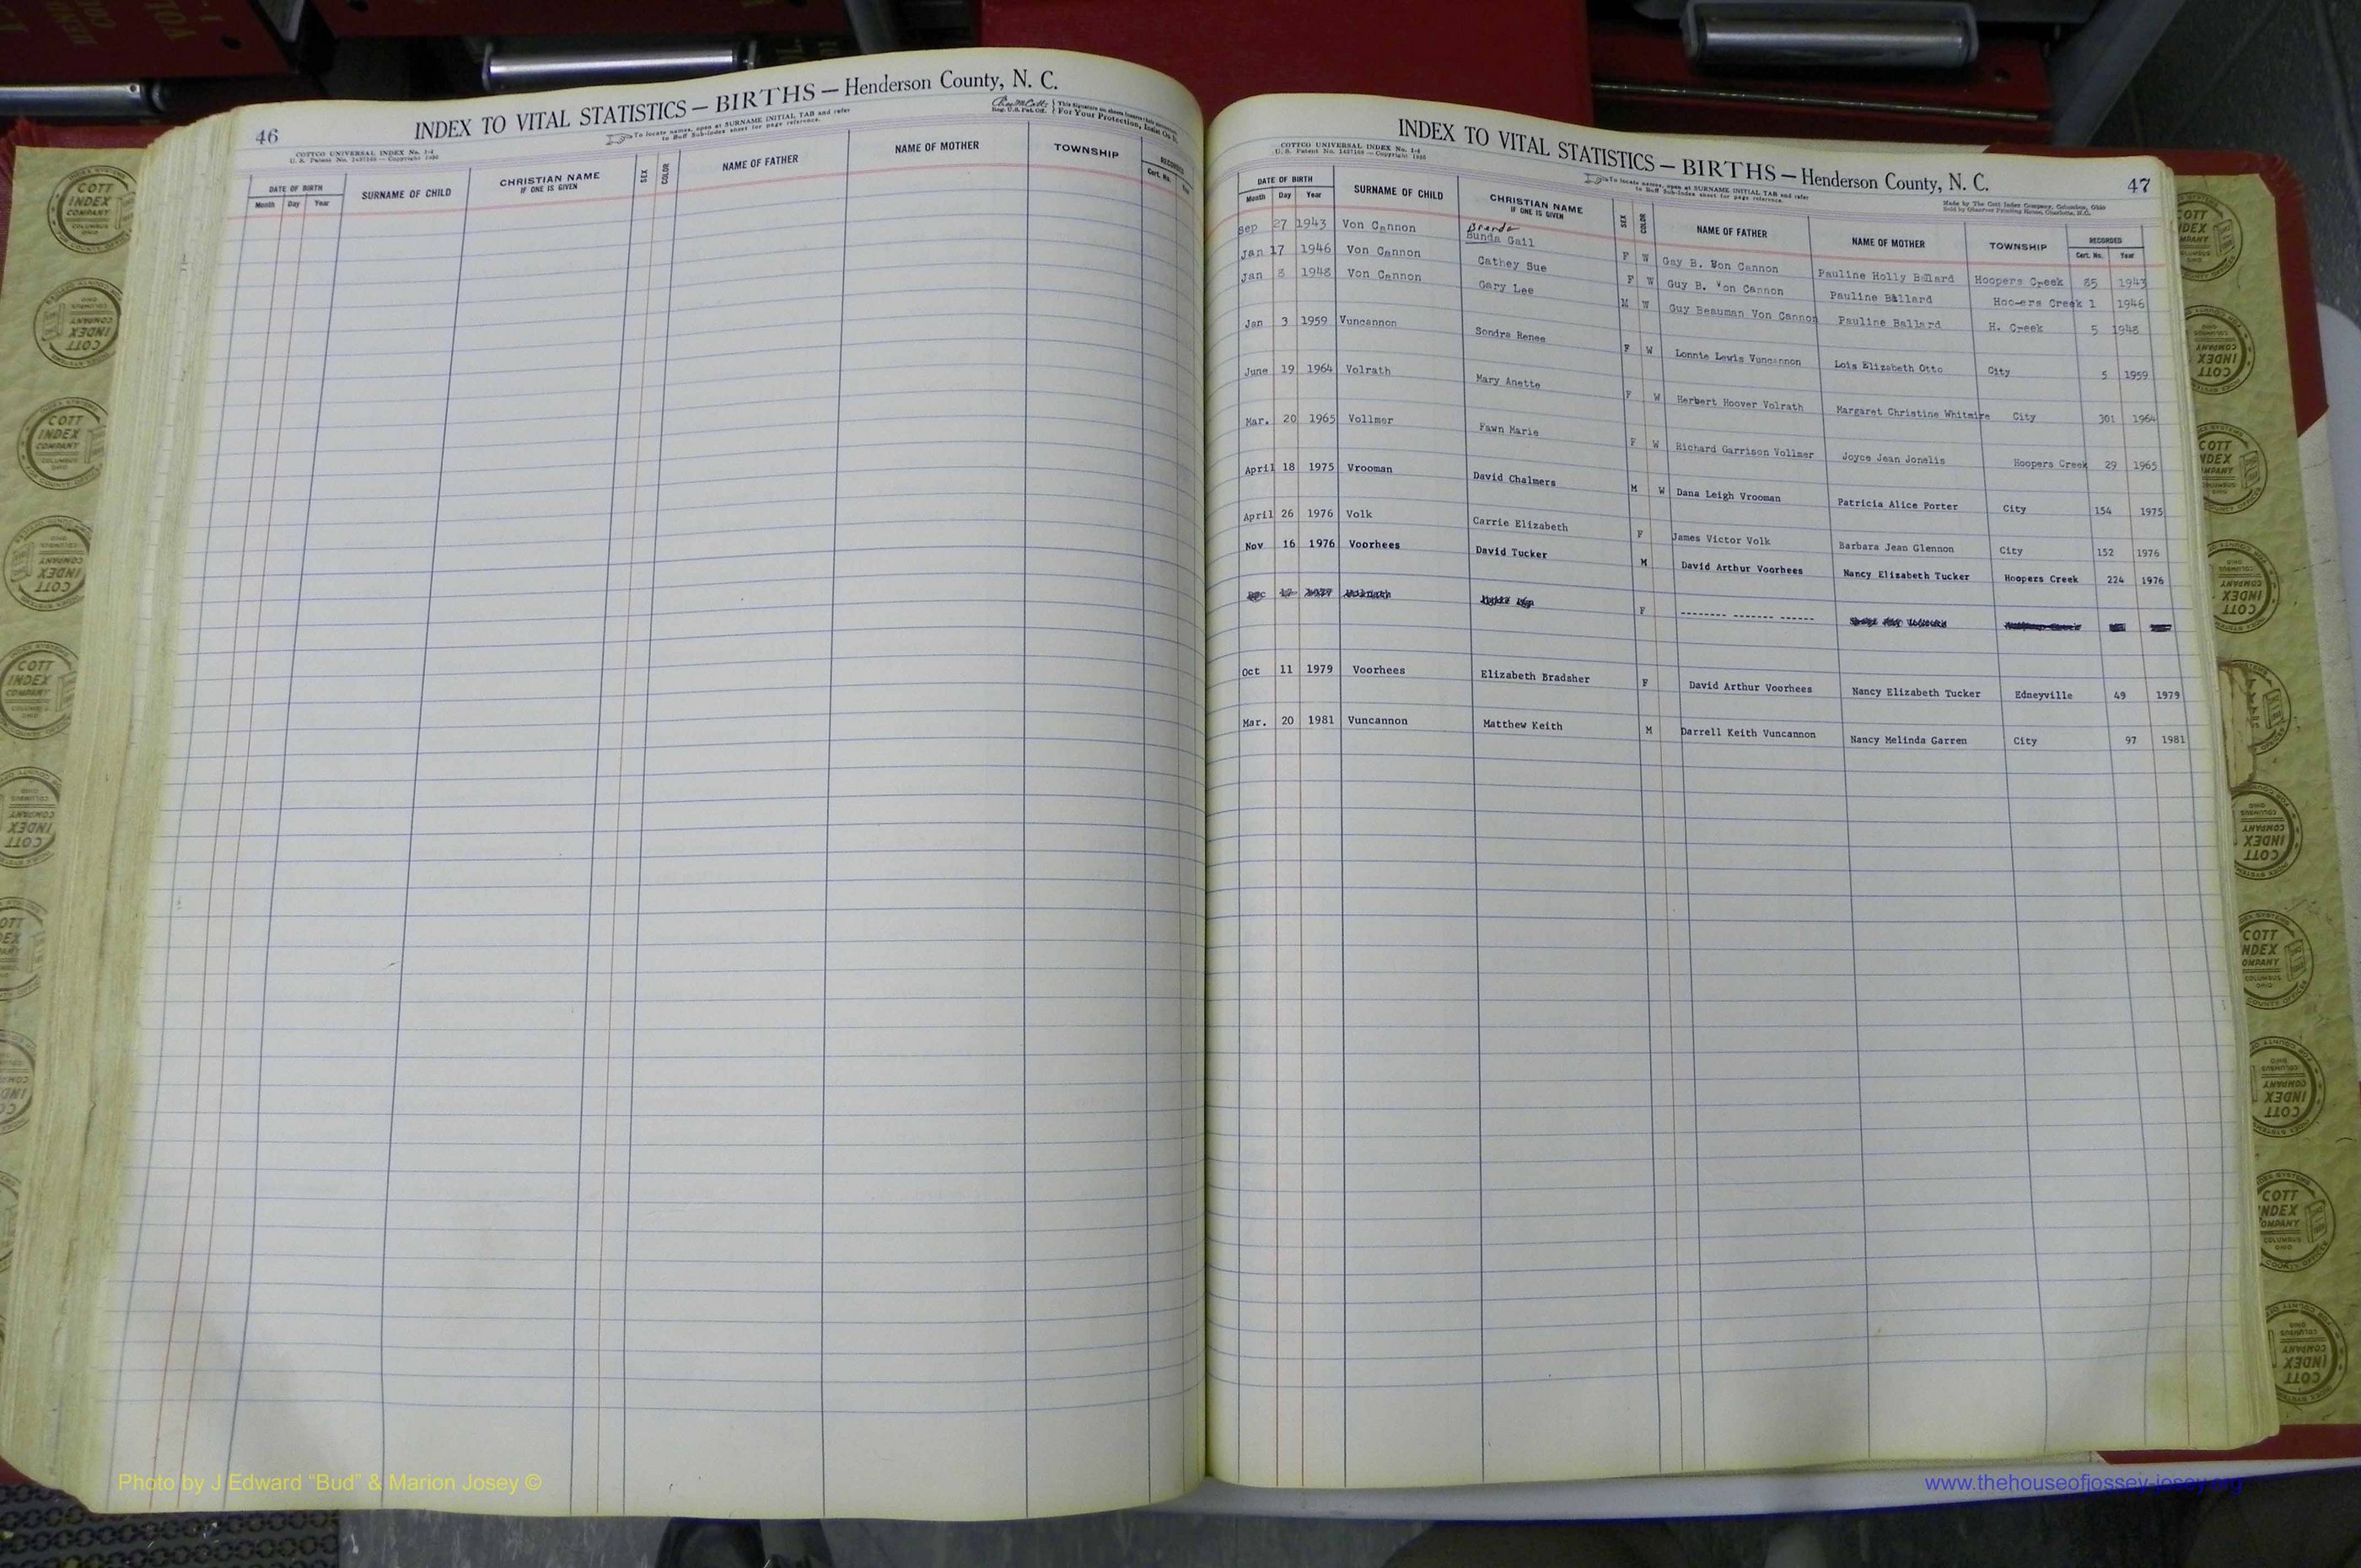 46
INDEX TO VITAL STATISTICS — BIRTHS — Henderson County, N. C.
COTTCO UNIVERSAL INDEX No. 1-4
U. S. Patent No. 1457169 — Copyright 1936
To locate names, open at SURNAME INITIAL TAB and refer
to Buff Sub-Index sheet for page reference.
Reg. U.S. Pat. Off.
For Your Protection, Insist On It.
DATE OF BIRTH
Month Day Year
SURNAME OF CHILD
CHRISTIAN NAME
IF ONE IS GIVEN
SEX
COLOR
NAME OF FATHER
NAME OF MOTHER
TOWNSHIP
RECORDED
Cert. No.
INDEX TO VITAL STATISTICS — BIRTHS — Henderson County, N. C.
47
COTTCO UNIVERSAL INDEX No. 1-4
U. S. Patent No. 1457169 — Copyright 1936
To locate names, open at SURNAME INITIAL TAB and refer
to Buff Sub-Index sheet for page reference.
Made by The Cott Index Company, Columbus, Ohio
Sold by Observer Printing House, Charlotte, N.C.
DATE OF BIRTH
Month Day Year
SURNAME OF CHILD
CHRISTIAN NAME
IF ONE IS GIVEN
SEX
COLOR
NAME OF FATHER
NAME OF MOTHER
TOWNSHIP
RECORDED
Cert. No. Year
Brenda
Sep 27 1943 Von Cannon Bunda Gail F W Gay B. Von Cannon Pauline Holly Ballard Hoopers Creek 85 1943
Jan 17 1946 Von Cannon Cathey Sue F W Guy B. Von Cannon Pauline Ballard Hoo-ers Creek 1 1946
Jan 3 1948 Von Cannon Gary Lee M W Guy Beauman Von Cannon Pauline Ballard H. Creek 5 1948
Jan 3 1959 Vuncannon Sondra Renee F W Lonnie Lewis Vuncannon Lois Elizabeth Otto City 5 1959
June 19 1964 Volrath Mary Anette F W Herbert Hoover Volrath Margaret Christine Whitmire City 301 1964
Mar. 20 1965 Vollmer Fawn Marie F W Richard Garrison Vollmer Joyce Jean Jonelis Hoopers Creek 29 1965
April 18 1975 Vrooman David Chalmers M W Dana Leigh Vrooman Patricia Alice Porter City 154 1975
April 26 1976 Volk Carrie Elizabeth F James Victor Volk Barbara Jean Glennon City 152 1976
Nov 16 1976 Voorhees David Tucker M David Arthur Voorhees Nancy Elizabeth Tucker Hoopers Creek 224 1976
F -------- ------- ------
Oct 11 1979 Voorhees Elizabeth Bradsher F David Arthur Voorhees Nancy Elizabeth Tucker Edneyville 49 1979
Mar. 20 1981 Vuncannon Matthew Keith M Darrell Keith Vuncannon Nancy Melinda Garren City 97 1981
COTT INDEX COMPANY COLUMBUS OHIO
Photo by J Edward “Bud” & Marion Josey ©
www.thehouseofjossey-josey.org